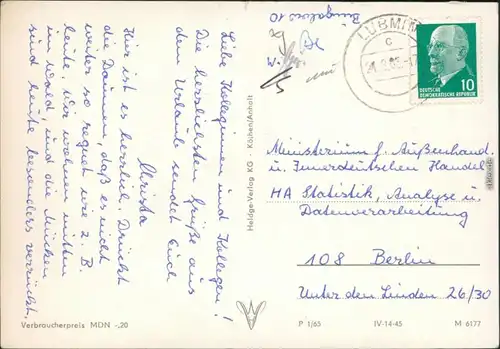 Liebe Kolleginnen und Kollegen!
Die herzlichsten Grüße aus
dem Urlaube sendet Euch
Christa
Hier ist es herrlich. Drückt
die Daumen, daß es nicht
weiter so regnet wie z. B.
heute. Wir wohnen mitten
im Wald, und die Mücken
sind heute besonders verrückt.
Verbraucherpreis MDN -,20
Heldge-Verlag KG - Köthen/Anhalt
Bungalows 10
LUBMIN
c
DEUTSCHE
DEMOKRATISCHE REPUBLIK
10
Ministerium f. Außenhand.
u. Innerdeutschen Handel
HA Statistik, Analyse u.
Datenverarbeitung
108 Berlin
Unter den Linden 26/30
P 1/65 IV-14-45 M 6177